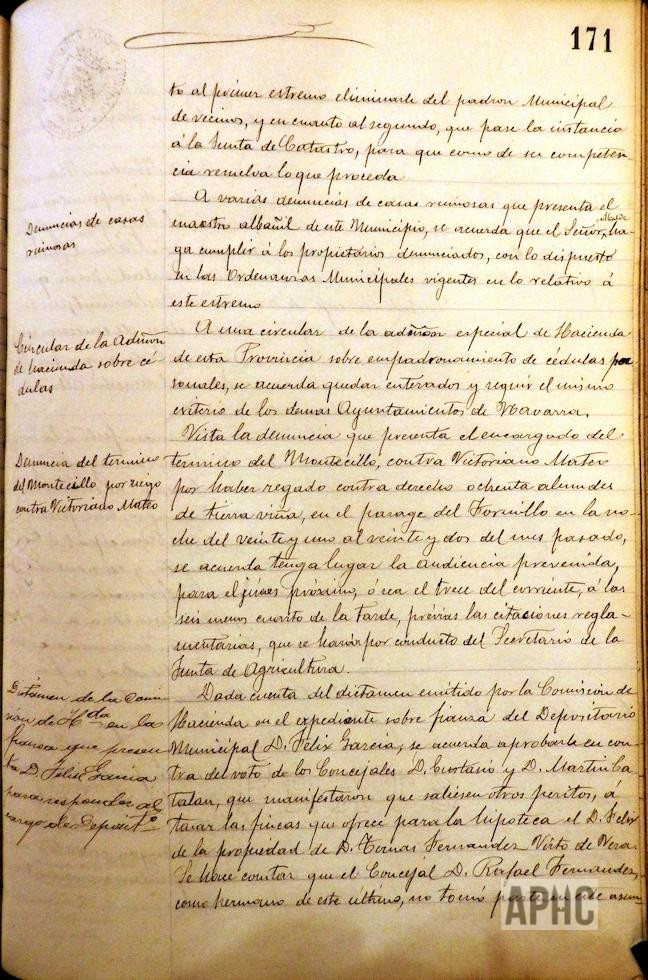 171
to al primer estremo eliminarle del padron Municipal
de vecinos, y en cuanto al segundo, que pase la instancia
á la Junta de Catastro, para que como de su competen-
cia resuelva lo que proceda
Denuncias de casas
ruinosas
A varias denuncias de casas ruinosas que presenta el
maestro albañil de este Municipio, se acuerda que el Señor Alcalde ha-
ga cumplir á los propietarios denunciados, con lo dispuesto
en las Ordenanzas Municipales vigentes en lo relativo á
este estremo
Circular de la Admon
de hacienda sobre cé-
dulas
A una circular de la admon especial de Hacienda
de esta Provincia sobre empadronamiento de cédulas per
sonales, se acuerda quedar enterados y seguir el mismo
criterio de los demas Ayuntamientos de Navarra.
Denuncia del termino
del Montecillo por riego
contra Victoriano Mateo
Vista la denuncia que presenta el encargado del
termino del Montecillo, contra Victoriano Mateo
por haber regado contra derecho ochenta almudes
de tierra viña, en el parage del Tornillo en la no-
che del veinte y uno al veinte y dos del mes pasado,
se acuerda tenga lugar la audiencia prevenida,
para el jueves próximo, ó sea el trece del corriente, á las
seis menos cuarto de la tarde, prévias las citaciones regla-
mentarias, que se harán por conducto del Secretario de la
Junta de Agricultura.
Dictámen de la Comi
sion de Hda en la
fianza que presen
ta D. Felix Garcia
para responder al
cargo de Deposito
Dada cuenta del dictamen emitido por la Comision de
Hacienda en el expediente sobre fianza del Depositario
Municipal D. Felix Garcia, se acuerda aprobarle en con-
tra del voto de los Concejales D. Eustasio y D. Martin Ca-
talan, que manifestaron que saliesen otros peritos, á
tasar las fincas que ofrece para la hipoteca el D. Felix
de la propiedad de D. Tomas Fernandez Virto de Vera.
Se hace constar que el Concejal D. Rafael Fernandez,
como hermano de este último, no tomó parte en este asun-
APHC